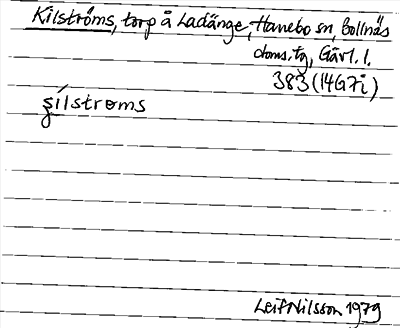 Kilströms, torp å Ladänge, Hanebo sn, Bollnäs
doms.tg, Gävl. l.
383 (14G7i)
şílstroms
Leif Nilsson 1979